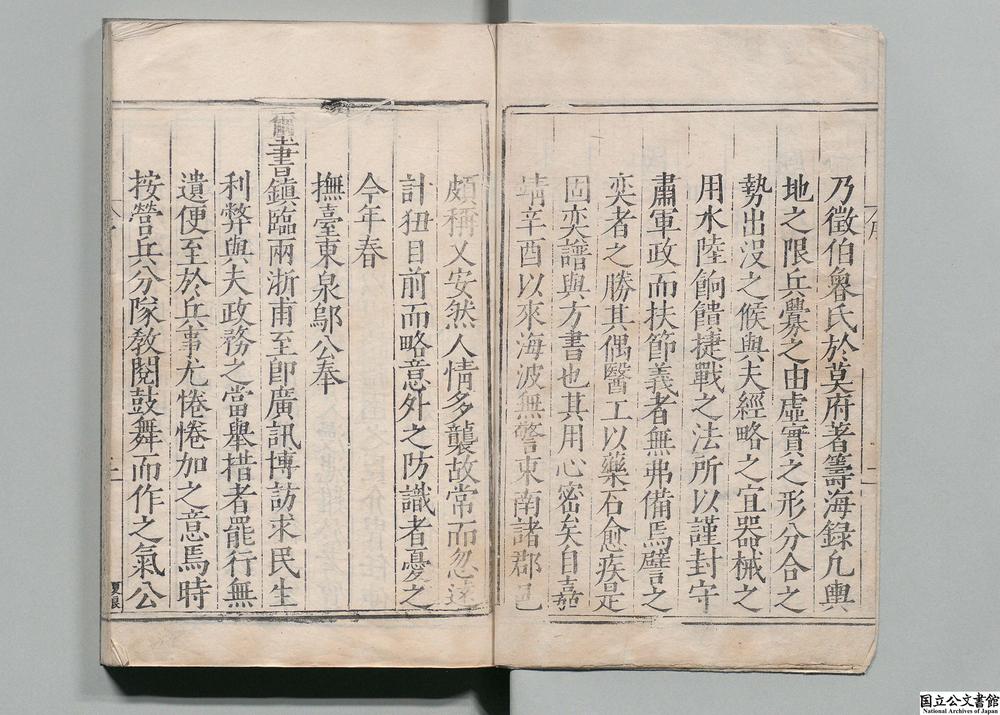 乃徵伯魯氏於莫府著籌海錄凡輿
地之限兵釁之由虛實之形分合之
勢出沒之候與夫經略之宜器械之
用水陸餉餽捷戰之法所以謹封守
肅軍政而扶節義者無弗備焉譬之
奕者之勝其偶醫工以藥石愈疾是
固奕譜與方書也其用心密矣自嘉
靖辛酉以來海波無警東南諸郡邑
頗稱乂安然人情多襲故常而忽遠
計狃目前而略意外之防識者憂之
今年春
撫臺東泉鄔公奉
璽書鎮臨兩浙甫至卽廣訊博訪求民生
利弊與夫政務之當舉措者罷行無
遺便至於兵事尤惓惓加之意焉時
按營兵分隊教閱鼓舞而作之氣公
序
二
夏恨
国立公文書館
National Archives of Japan